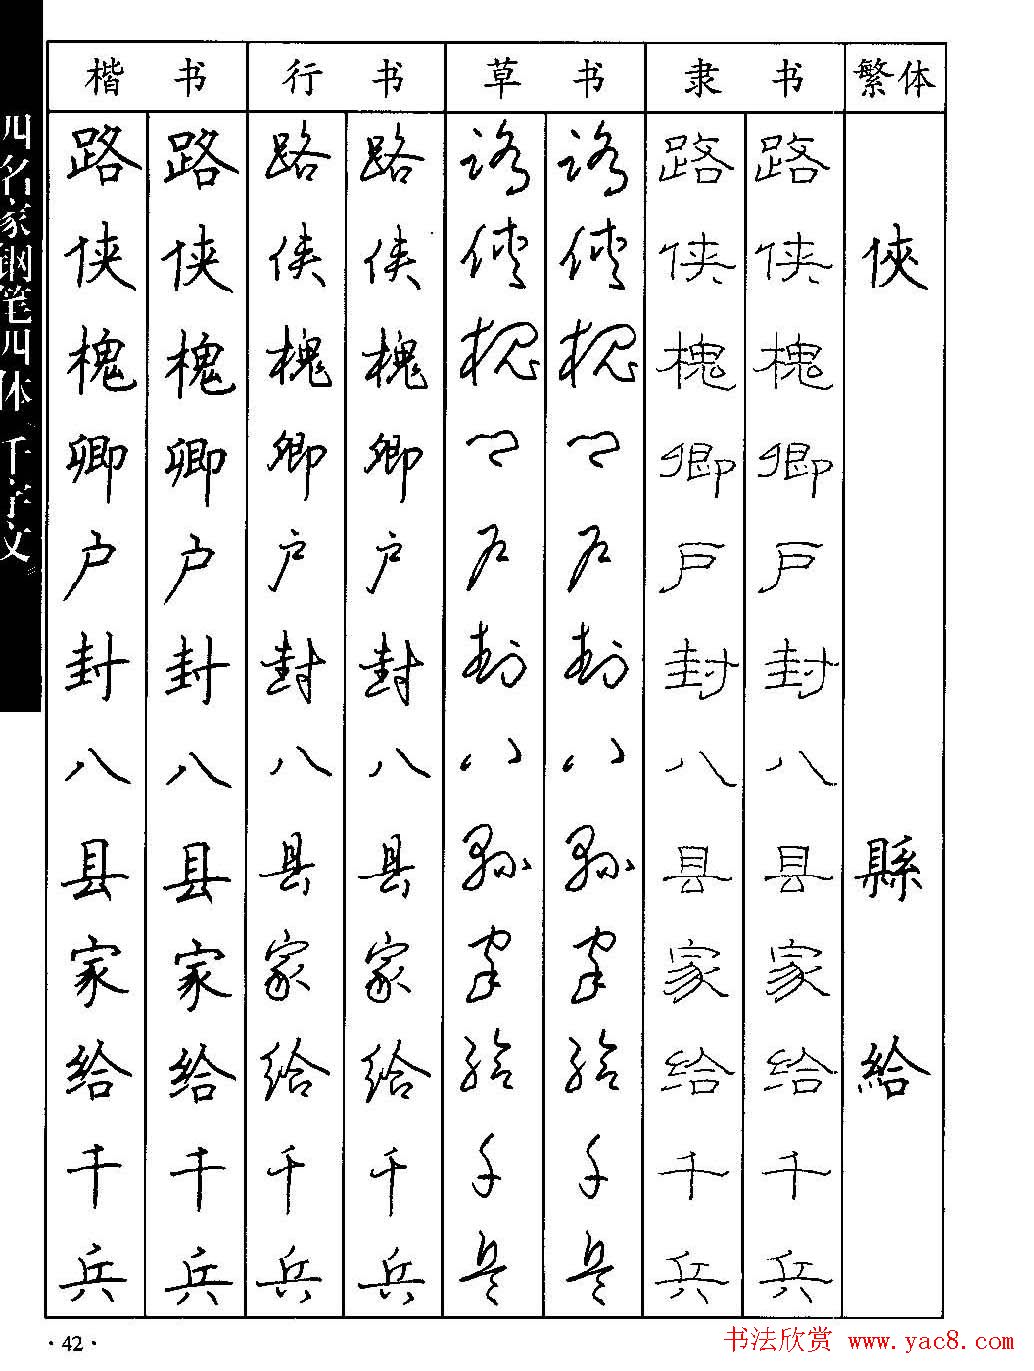 四名家钢笔四体千字文
楷书 行书 草书 隶书 繁体
路 路 路 路 路 路 路 路
侠 侠 侠 侠 侠 侠 侠 侠 俠
槐 槐 槐 槐 槐 槐 槐 槐
卿 卿 卿 卿 卿 卿 卿 卿
户 户 户 户 户 户 户 户
封 封 封 封 封 封 封 封
八 八 八 八 八 八 八 八
县 县 县 县 县 县 县 县 縣
家 家 家 家 家 家 家 家
给 给 给 给 给 给 给 给 給
千 千 千 千 千 千 千 千
兵 兵 兵 兵 兵 兵 兵 兵
·42·
书法欣赏 www.yac8.com